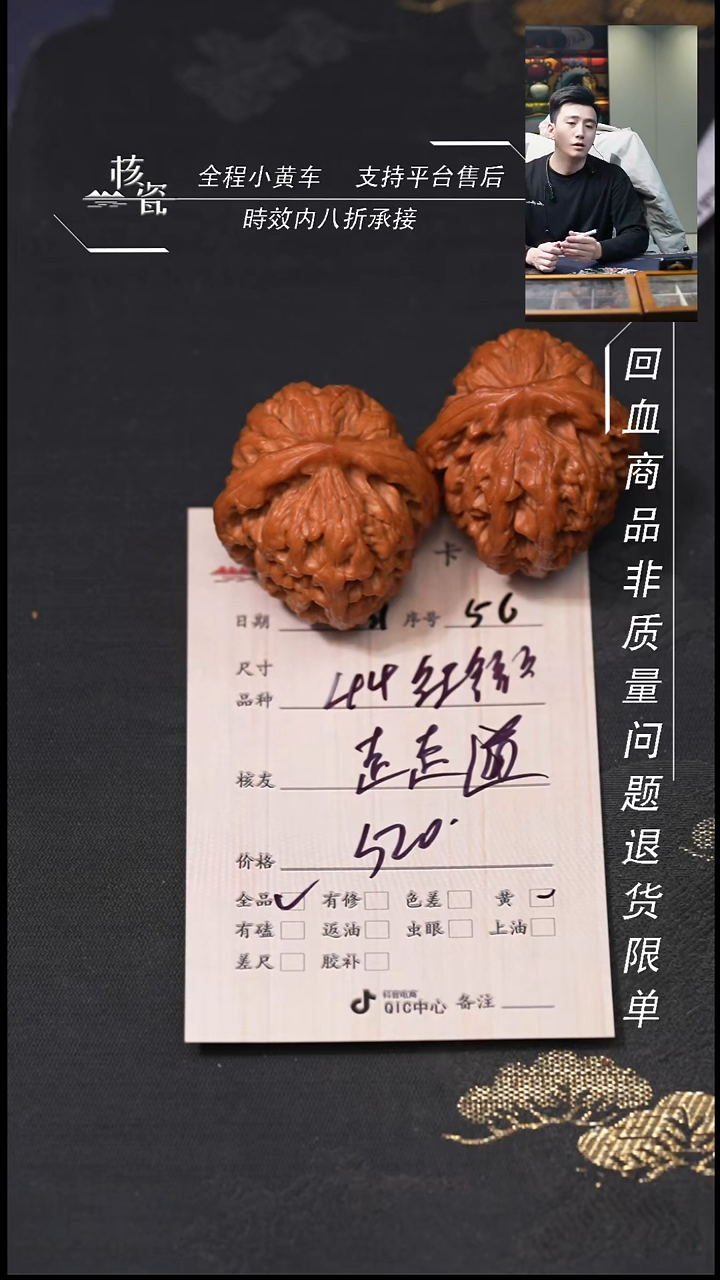 核瓷
全程小黄车 支持平台售后
時效内八折承接
回血商品非质量问题退货限单
卡
日期 序号 56
尺寸
品种 44 红
核友 走走道
价格 520.
全品 有修 色差 黄
有磕 返油 虫眼 上油
差尺 胶补
抖音电商
QIC中心 备注